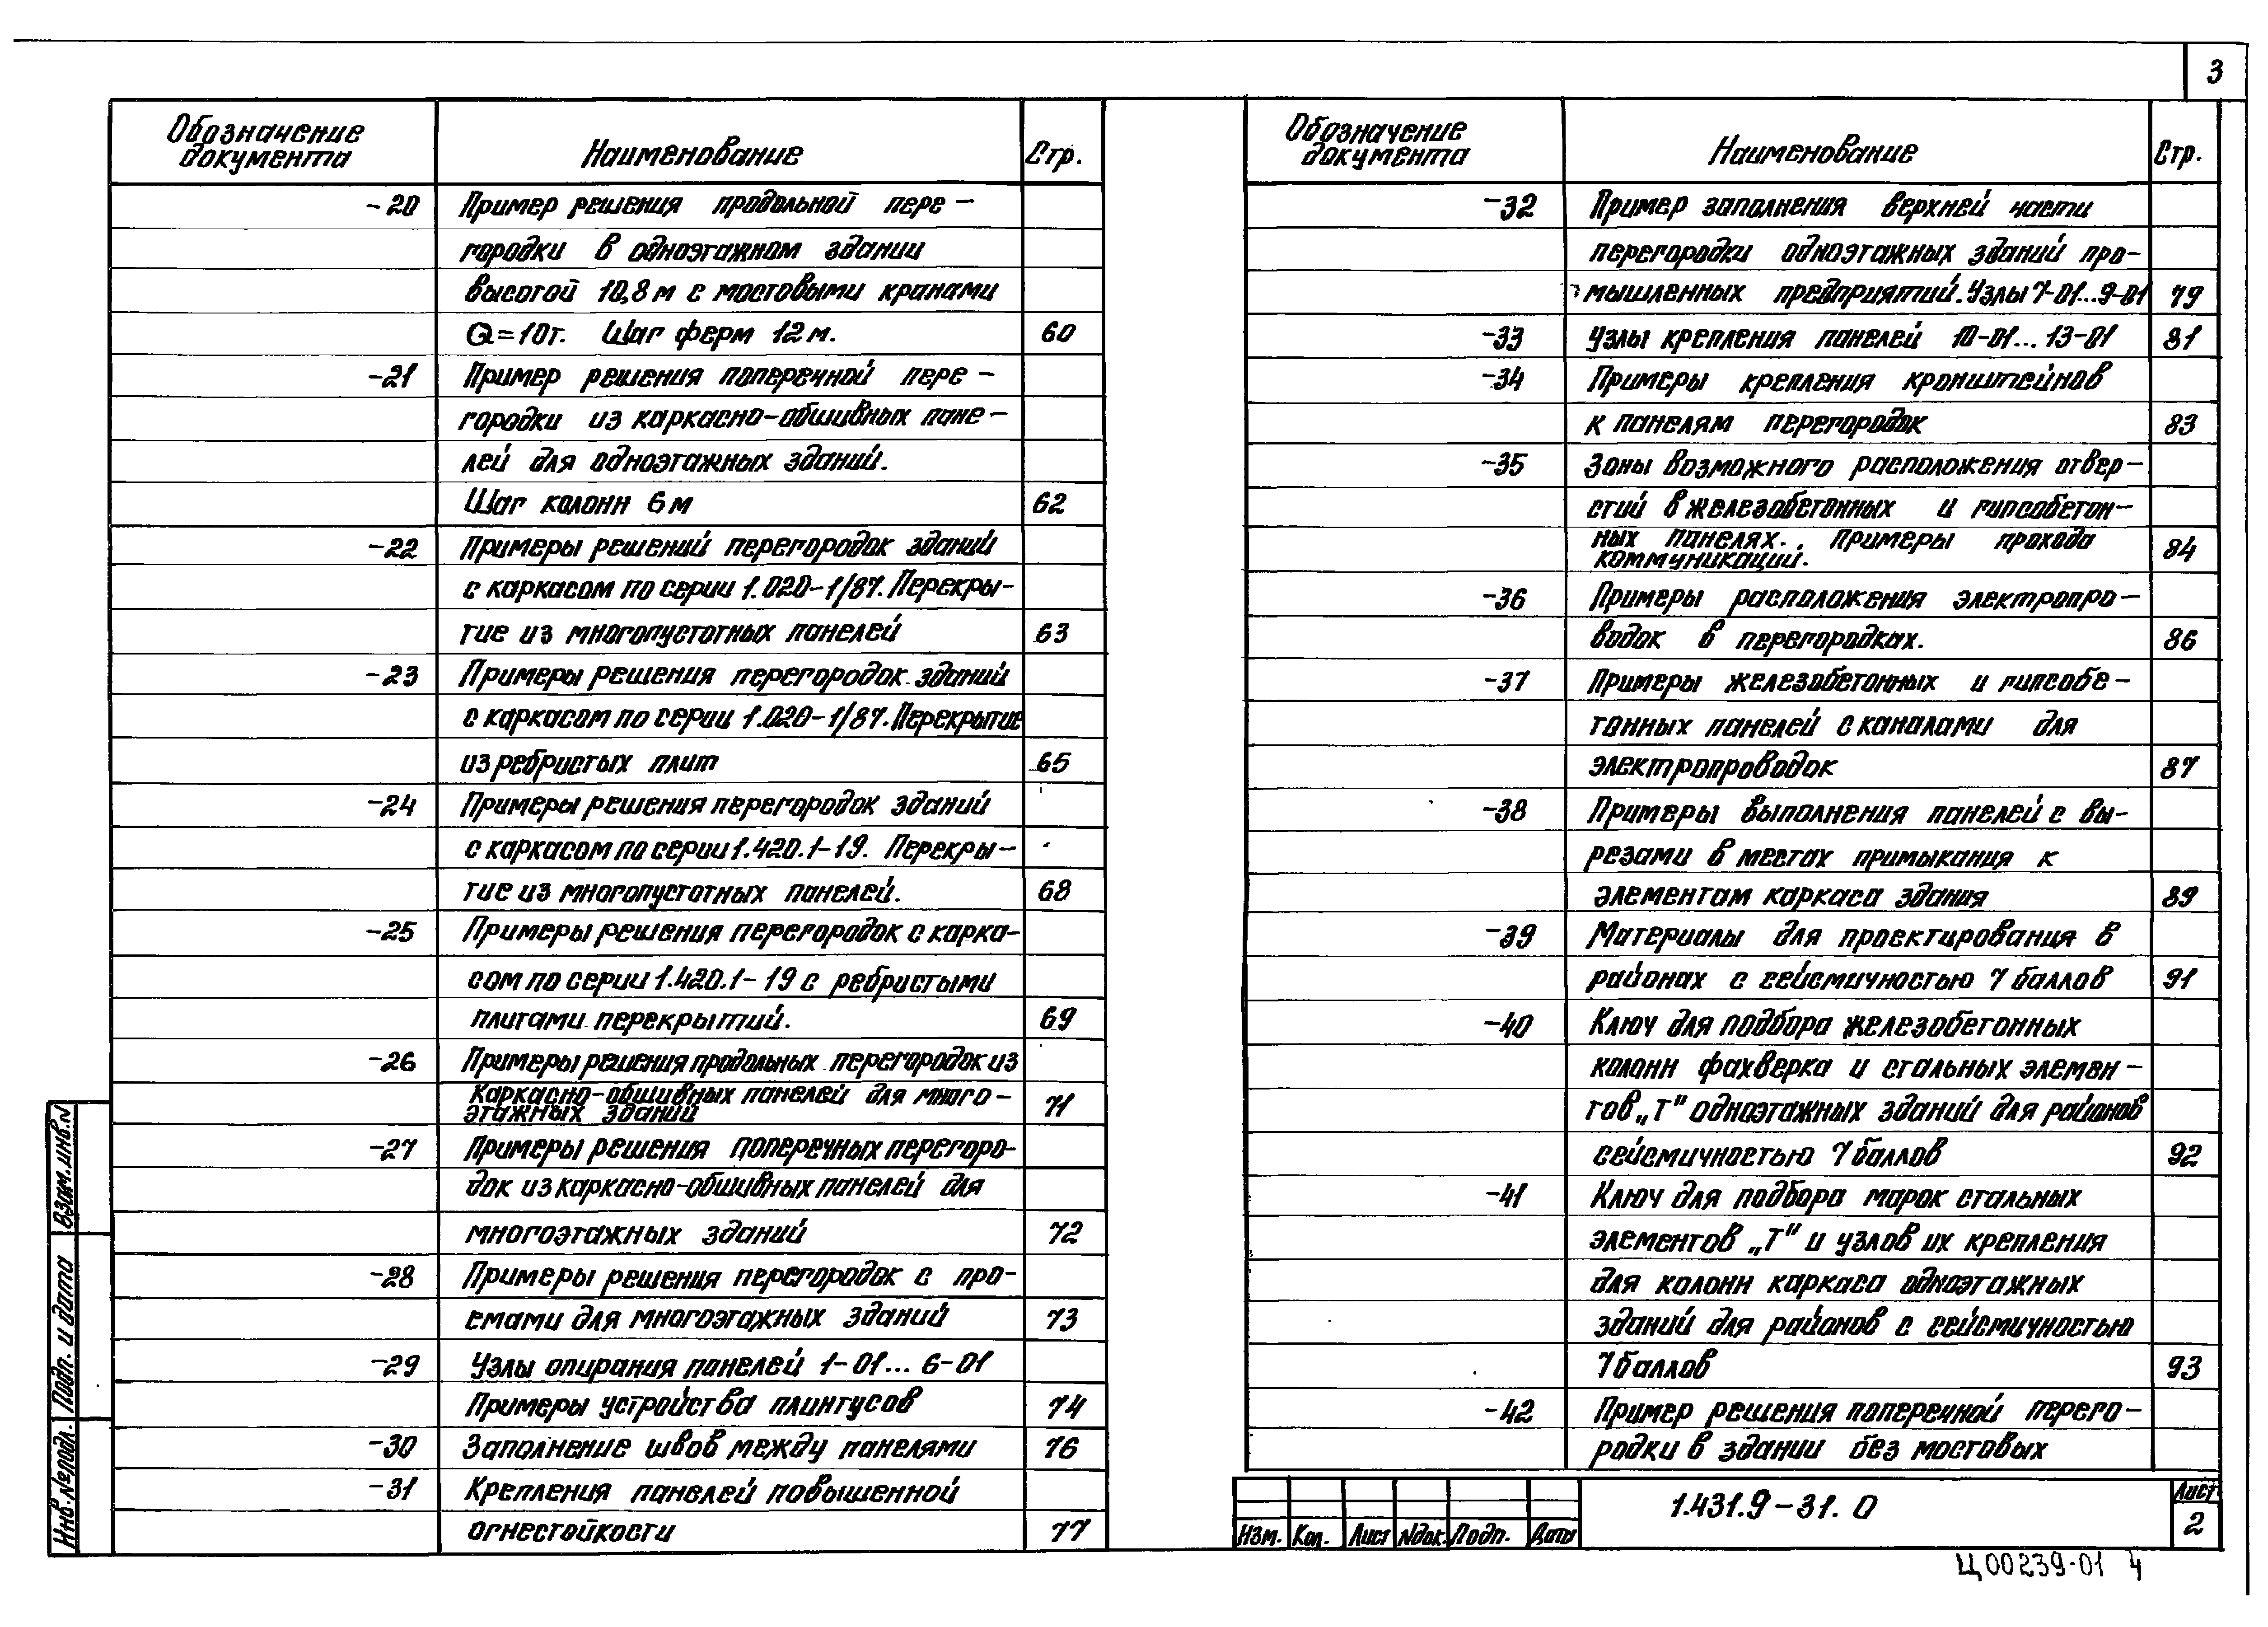 3
Обозначение
документа
Наименование
Стр.
-20
Пример решения продольной пере-
городки в одноэтажном здании
высотой 10,8 м с мостовыми кранами
Q=10т. Шаг ферм 12 м.
60
-21
Пример решения поперечной пере-
городки из каркасно-обшивных пане-
лей для одноэтажных зданий.
Шаг колонн 6 м
62
-22
Примеры решений перегородок зданий
с каркасом по серии 1.020-1/87. Перекры-
тие из многопустотных панелей
63
-23
Примеры решения перегородок зданий
с каркасом по серии 1.020-1/87. Перекрытие
из ребристых плит
65
-24
Примеры решения перегородок зданий
с каркасом по серии 1.420.1-19. Перекры-
тие из многопустотных панелей.
68
-25
Примеры решения перегородок с карка-
сом по серии 1.420.1-19 с ребристыми
плитами перекрытий.
69
-26
Примеры решения продольных перегородок из
каркасно-обшивных панелей для много-
этажных зданий
71
-27
Примеры решения поперечных перегоро-
док из каркасно-обшивных панелей для
многоэтажных зданий
72
-28
Примеры решения перегородок с про-
емами для многоэтажных зданий
73
-29
Узлы опирания панелей 1-01... 6-01
Примеры устройства плинтусов
74
-30
Заполнение швов между панелями
76
-31
Крепления панелей повышенной
огнестойкости
77
Обозначение
документа
Наименование
Стр.
-32
Пример заполнения верхней части
перегородки одноэтажных зданий про-
мышленных предприятий. Узлы 7-01...9-01
79
-33
Узлы крепления панелей 10-01... 13-01
81
-34
Примеры крепления кронштейнов
к панелям перегородок
83
-35
Зоны возможного расположения отвер-
стий в железобетонных и гипсобетон-
ных панелях. Примеры прохода
коммуникаций.
84
-36
Примеры расположения электропро-
водок в перегородках.
86
-37
Примеры железобетонных и гипсобе-
тонных панелей с каналами для
электропроводок
87
-38
Примеры выполнения панелей с вы-
резами в местах примыкания к
элементам каркаса здания
89
-39
Материалы для проектирования в
районах с сейсмичностью 7 баллов
91
-40
Ключ для подбора железобетонных
колонн фахверка и стальных элемен-
тов „Т" одноэтажных зданий для районов
сейсмичностью 7 баллов
92
-41
Ключ для подбора марок стальных
элементов „Т" и узлов их крепления
для колонн каркаса одноэтажных
зданий для районов с сейсмичностью
7 баллов
93
-42
Пример решения поперечной перего-
родки в здании без мостовых
Взам. инв. N
Подп. и дата
Инв. № подл.
Изм. Кол. Лист Nдок. Подп. Дата
1.431.9-31. 0
Лист
2
Ц00239-01 4